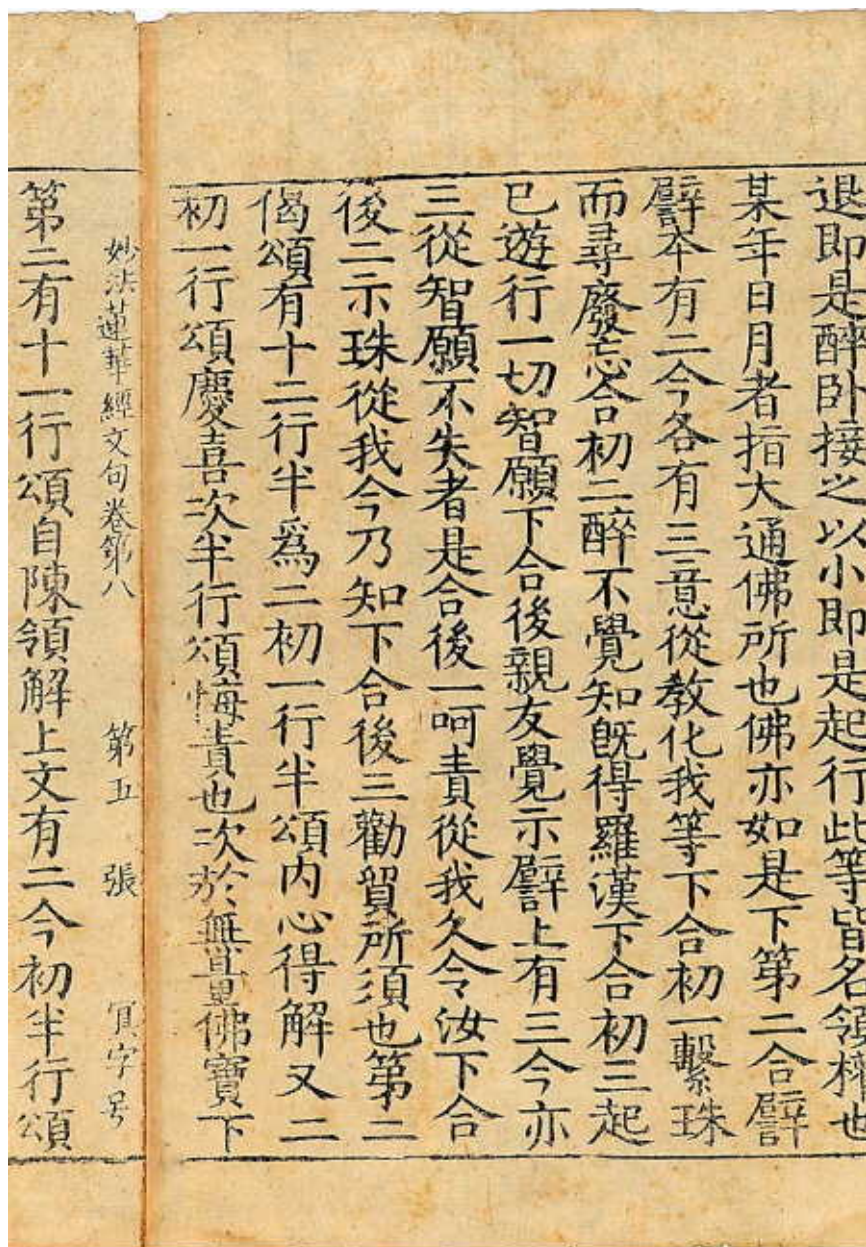 退即是醉卧接之以小即是起行此等皆名領權也
某年日月者指大通佛所也佛亦如是下第二合譬
譬本有二今各有三意從教化我等下合初一繫珠
而尋廢忘合初二醉不覺知既得羅漢下合初三起
已遊行一切智願下合後親友覺示譬上有三今亦
三從智願不失者是合後一呵責從我久令汝下合
後二示珠從我今乃知下合後三勸貿所須也第二
偈頌有十二行半爲二初一行半頌内心得解又二
初一行頌慶喜次半行頌悔責也次於無量佛寶下
妙法蓮華經文句卷第八 第五 張 冥字号
第二有十一行頌自陳領解上文有二今初半行頌